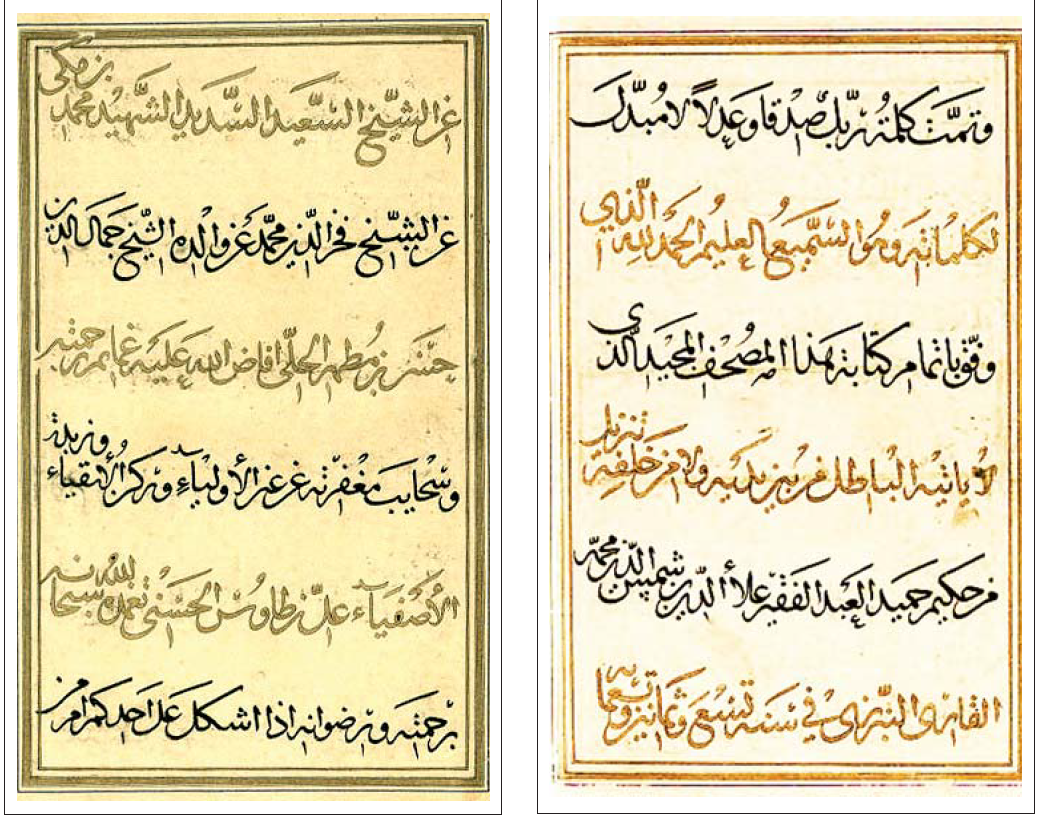 وتمت كلمة ربك صدقا وعدلاً لا مبدل
لكلماته وهو السميع العليم الحمد لله الذي
وفق باتمام كتابة هذا المصحف المجيد الذي
لا ياتيه الباطل من بين يديه ولا من خلفه تنزيل
من حكيم حميد العبد الفقير علاأ الدين بن شمس الدين محمد
القارى التبريزى في سنة تسع وثمانين وتسعمايه
عن الشيخ السعيد السديد الشهيد محمد بن مكى
عن الشيخ فخر الدين محمد عن والده الشيخ جمال الدين
حسن بن مطهر الحلي افاض الله عليه غمايم رحمته
وسحايب مغفرته عن عز الأولياء وركن الأتقياء وزبدة
الأصفياء علي بن طاوس الحسني تغمده الله سبحانه
برحمته ورضوانه اذا اشكل على احدكم امر من